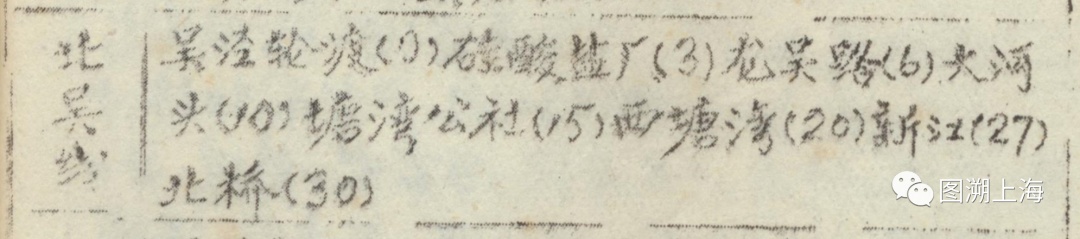 北吴线
吴泾轮渡(0)硅酸盐厂(3)龙吴路(6)大河
头(10)塘湾公社(15)西塘湾(20)新江(27)
北桥(30)
图溯上海